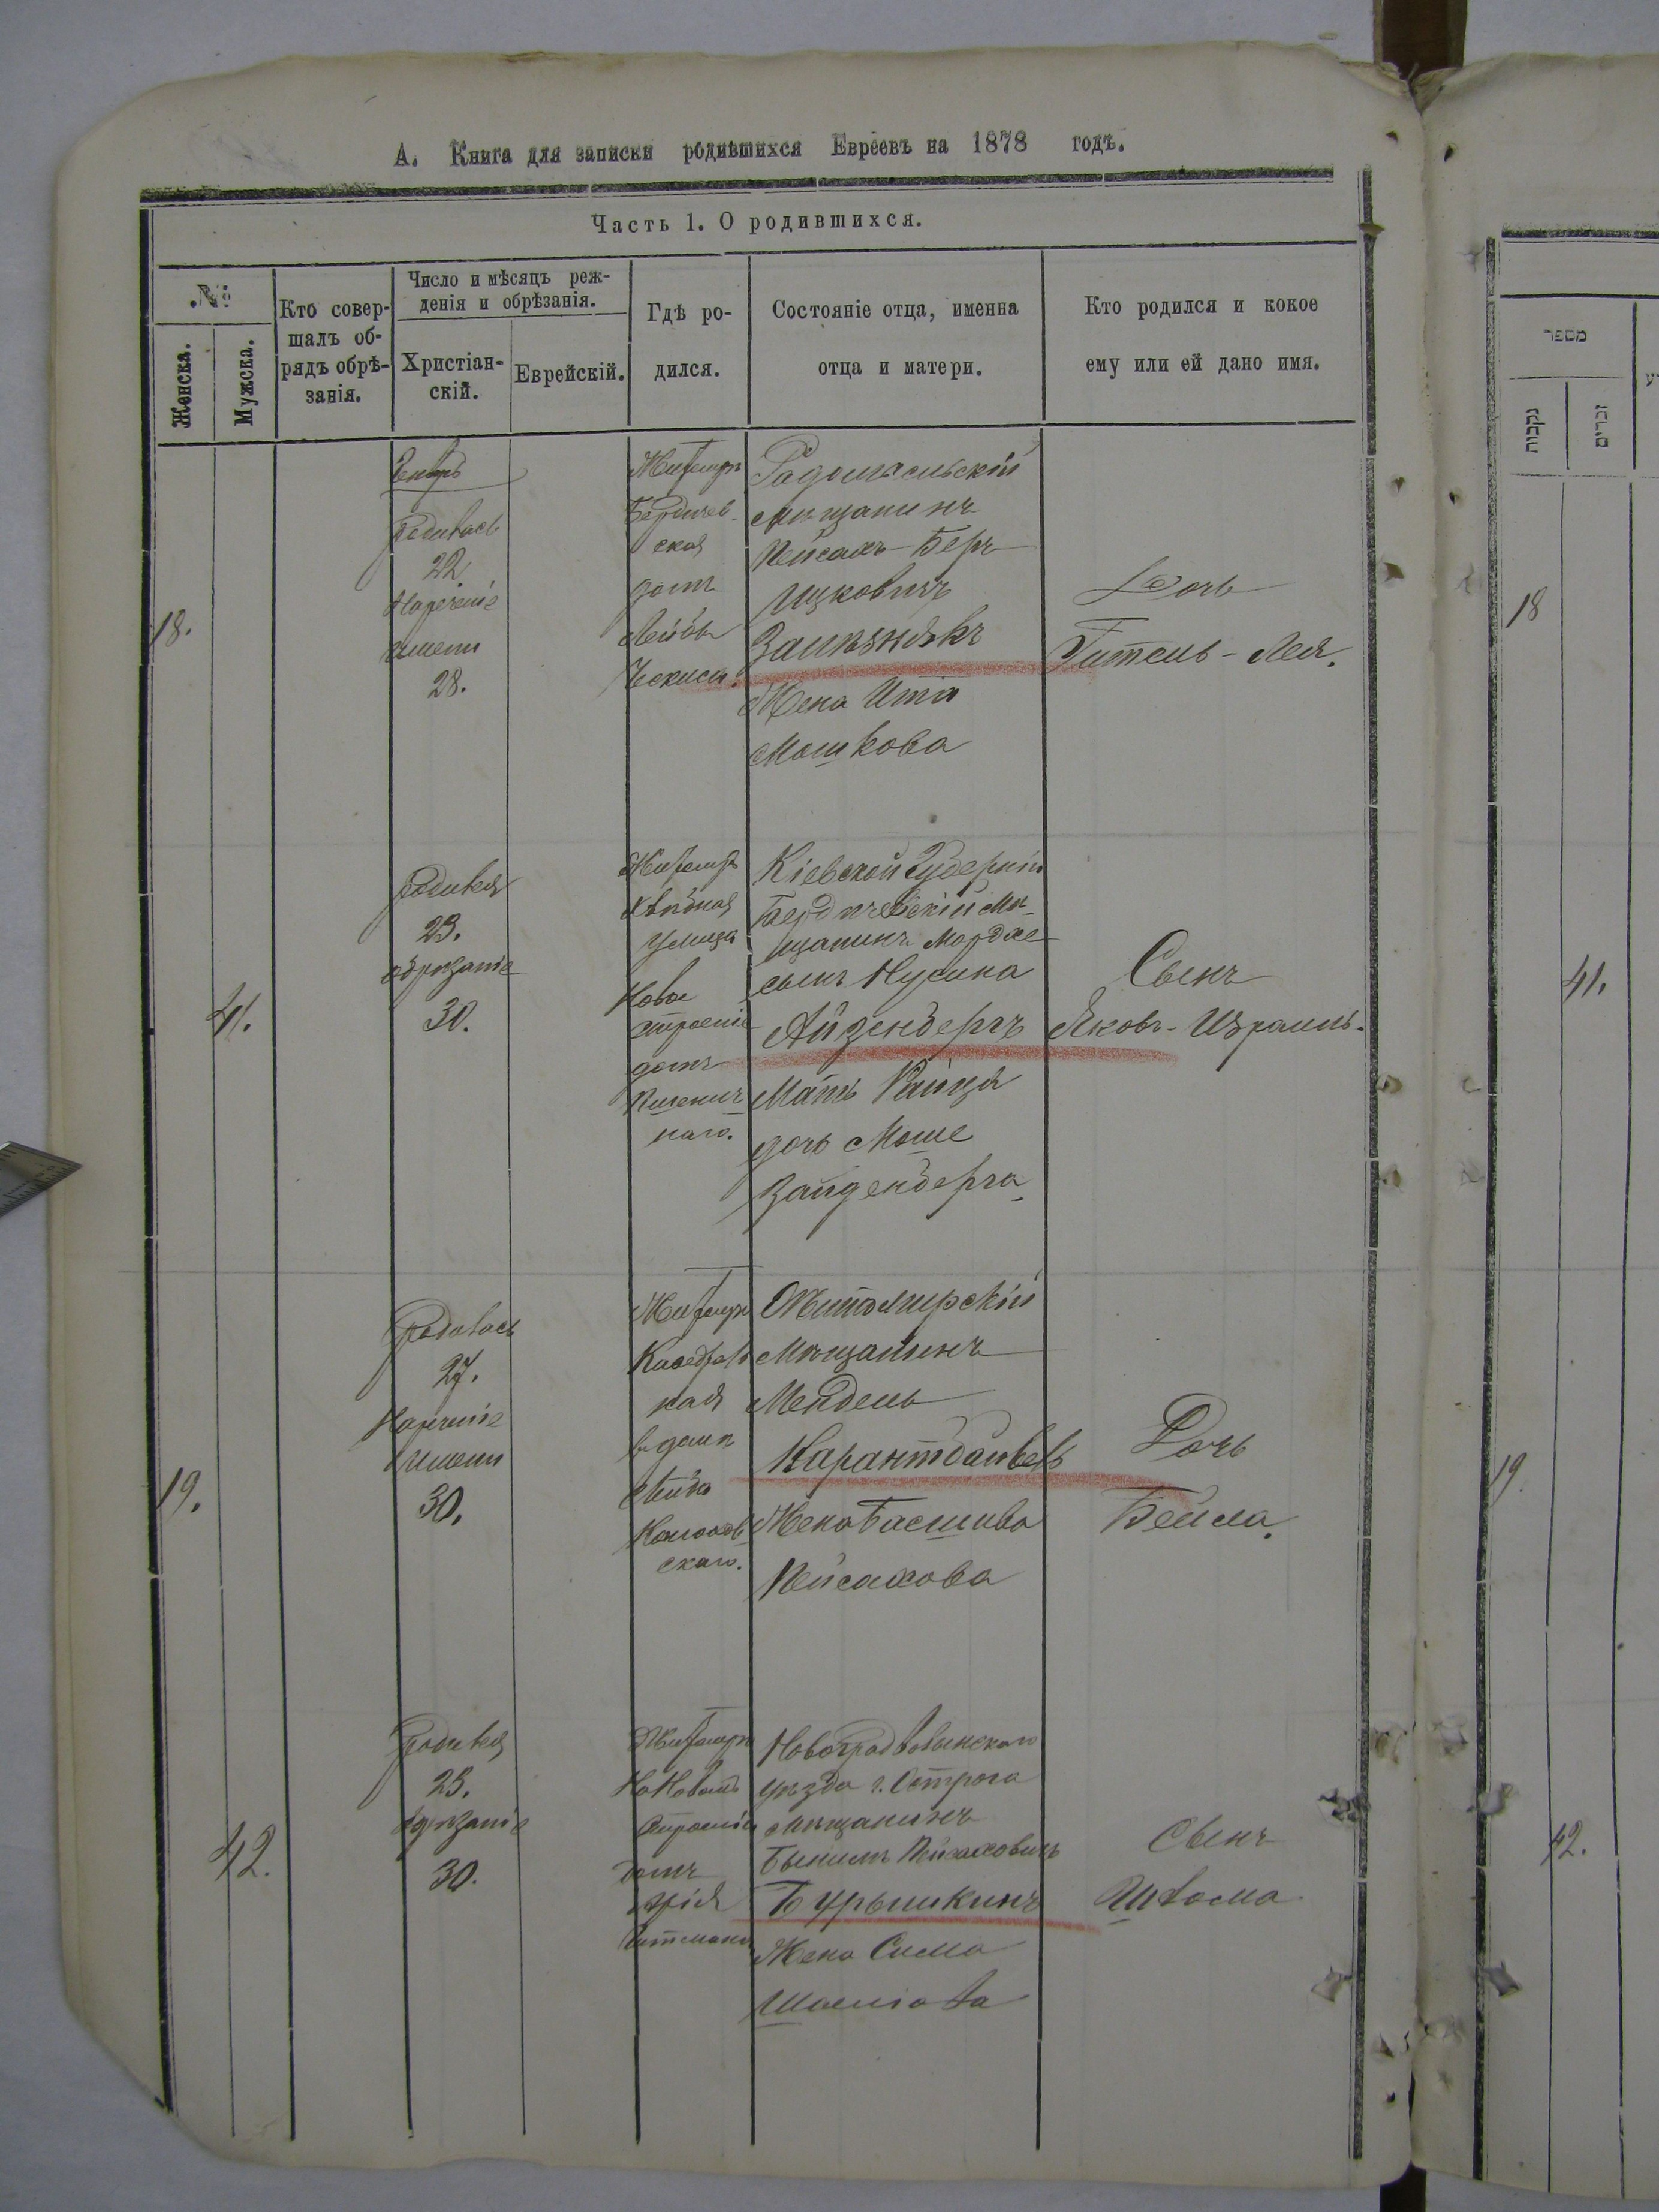 А. Книга для записки родившихся Евреевъ на 1878 годъ.
Часть 1. О родившихся.
№
Женска.
Мужска.
Кто совер-
шалъ об-
рядъ обрѣ-
занія.
Число и мѣсяцъ реж-
денія и обрѣзанія.
Христіан-
скій.
Еврейскій.
Гдѣ ро-
дился.
Состояніе отца, именна
отца и матери.
Кто родился и кокое
ему или ей дано имя.
18.
Родилась
22
Нареченіе
имени
28.
Житомиръ
Бердичев-
ская
домъ
Лейбы
Радомысльскій
мѣщанинъ
Пейсахъ-Беръ
Ицковичъ
Жена Итя
Мошкова
Дочь
Гитель-Лея.
41.
Родился
23.
обрѣзаніе
30.
Житомиръ
улица
Новое
строеніе
домъ
Кіевской Губерніи
Бердичевскій Мѣ-
щанинъ Мордхе
сынъ Нусина
Айзенбергъ
Мать Райця
дочь Моше
Зайденберга
Сынъ
Яковъ-Израиль.
19.
Родилась
27.
Нареченіе
имени
30.
Житомиръ
Каѳедраль
ная
в домѣ
скаго.
Житомирскій
Мѣщанинъ
Мендель
Жена Басшива
Пейсахова
Дочь
Бейла.
42.
Родился
23.
обрѣзаніе
30.
Житомиръ
На Новомъ
строеніи
домъ
Новоградволынскаго
уѣзда г. Острога
мѣщанинъ
Бынимъ Пейсаховичъ
Бурышкинъ
Жена Сима
Шаеліова
Сынъ
Шлома
מספר
נקבות
זכרים
18
41.
19.
42.